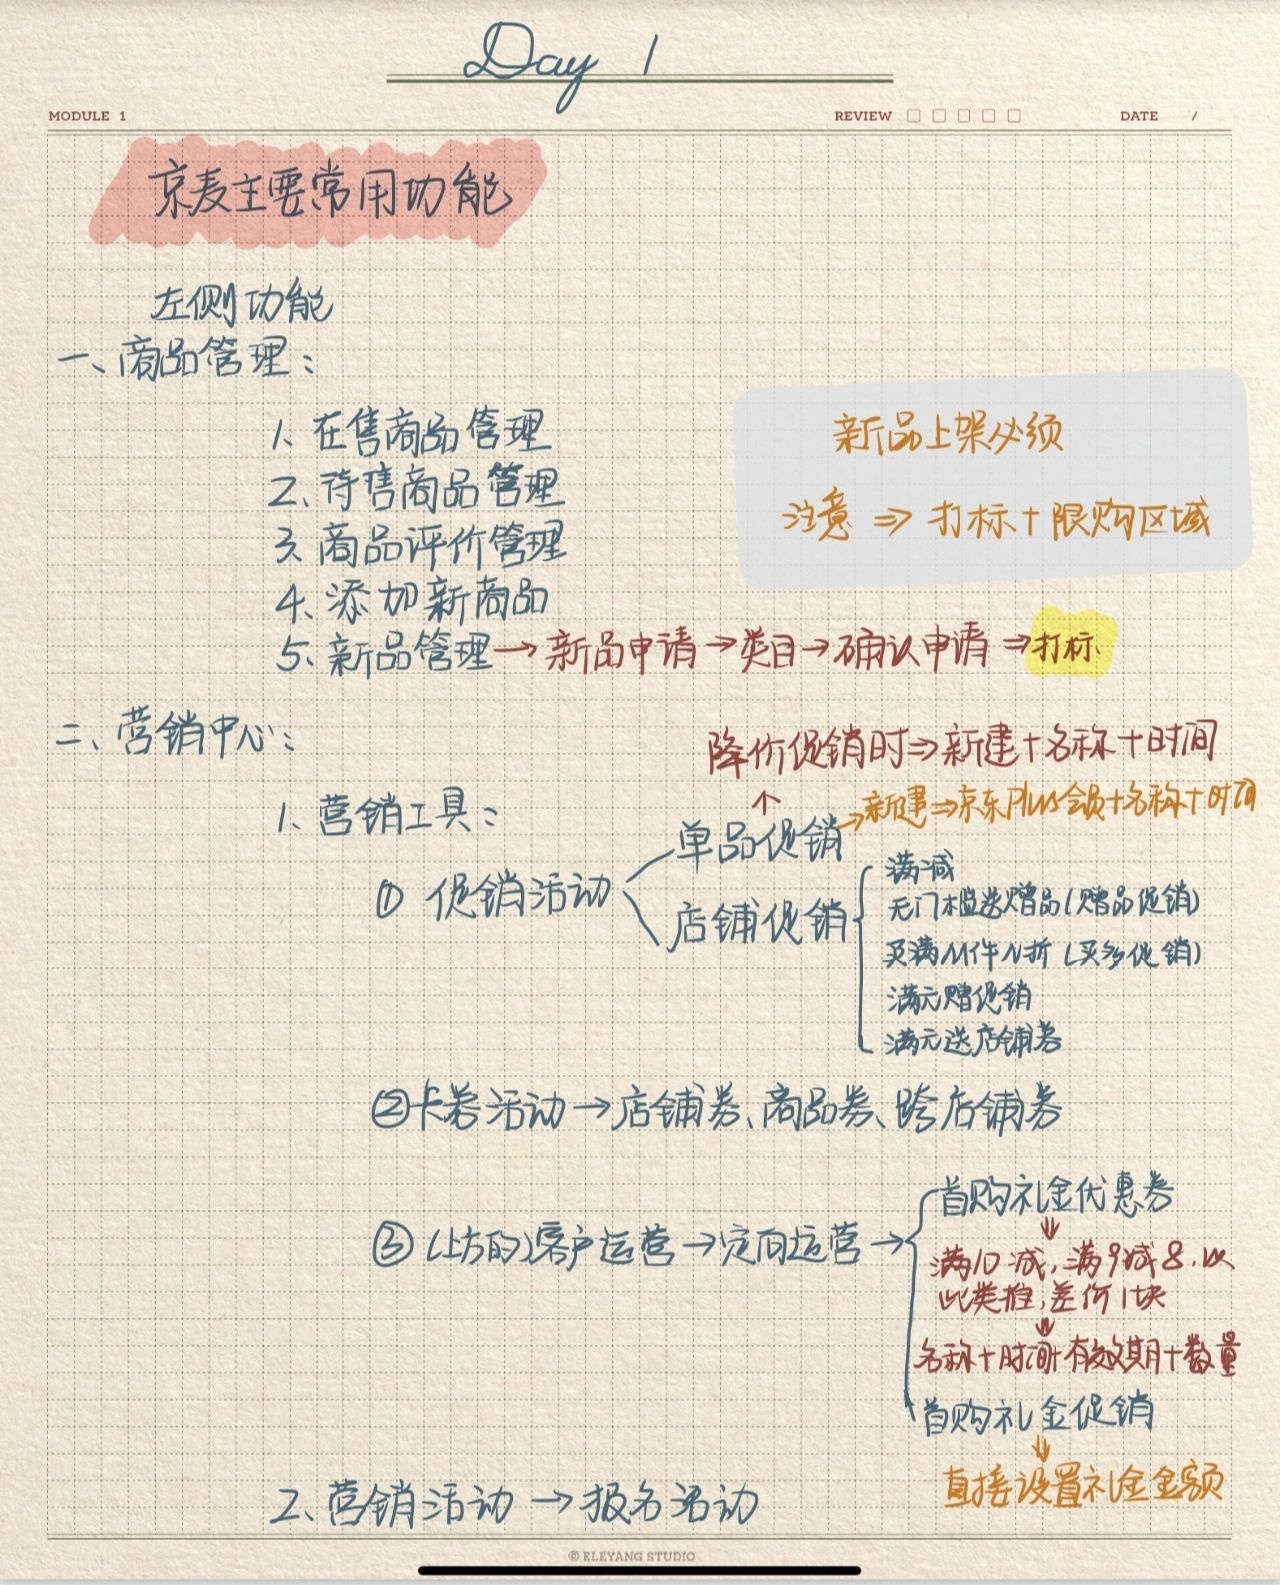 Day 1
MODULE 1 REVIEW DATE /
京麦主要常用功能
左侧功能
一、商品管理：
1、在售商品管理
2、待售商品管理
3、商品评价管理
4、添加新商品
5、新品管理→新品申请→类目→确认申请⇒打标
新品上架必须
注意⇒打标+限购区域
二、营销中心：
1、营销工具：
降价促销时⇒新建+名称+时间
↑
① 促销活动
单品促销→新建⇒京东Plus会员+名称+时间
店铺促销
满减
无门槛送赠品(赠品促销)
买满M件N折(买多促销)
满元赠促销
满元送店铺券
②卡券活动→店铺券、商品券、跨店铺券
③(上方的)客户运营→定向运营→
首购礼金优惠券
⇓
满10减,满9减8.以
此类推,差价1块
⇓
名称+时间+有效期+数量
首购礼金促销
⇓
直接设置礼金金额
2、营销活动→报名活动
© ELEYANG STUDIO